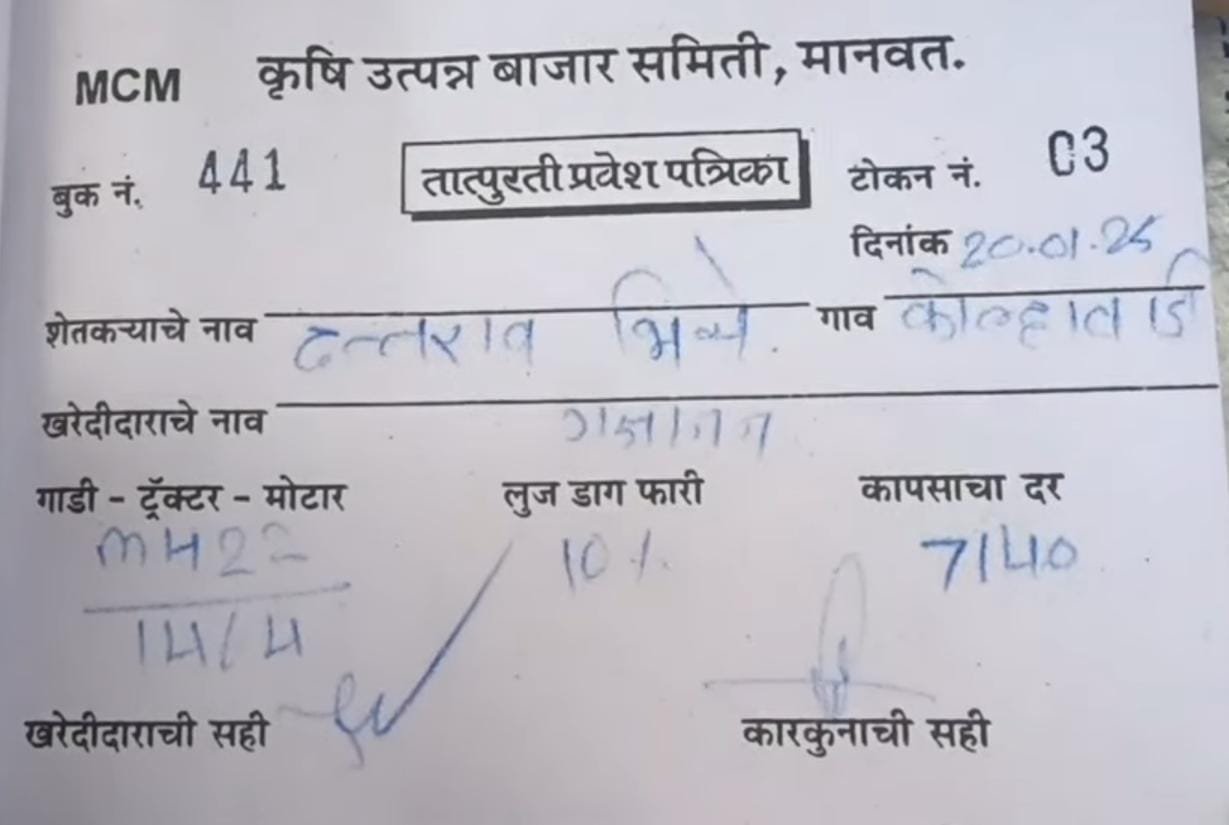 MCM कृषि उत्पन्न बाजार समिती, मानवत.
बुक नं. 441 तात्पुरती प्रवेश पत्रिका टोकन नं. 03
दिनांक 20.01.25
शेतकऱ्याचे नाव दत्तराव भिसे. गाव कोल्हावाडी
खरेदीदाराचे नाव गजानन
गाडी - ट्रॅक्टर - मोटार लुज डाग फारी कापसाचा दर
MH22 10% 7140
खरेदीदाराची सही कारकुनाची सही